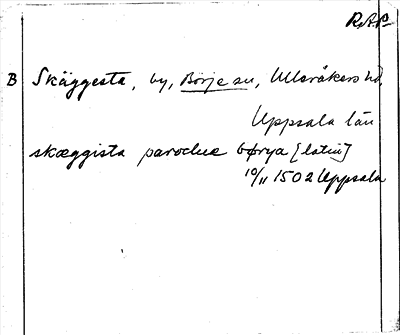 R.A.P
B Skäggesta, by, Börje sn, Ulleråkers hd,
Uppsala län
skæggista parochie børya [latin]
10/11 1502 Uppsala